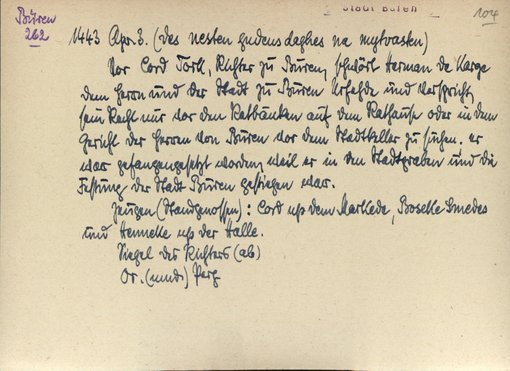 Büren
262
Stadt Büren
104
1443 Apr. 3. (des nesten gudensdaghes na mytvasten)
Vor Cord Tork, Richter zu Büren, schwört Herman de Karge
dem Herrn und der Stadt zu Büren Urfehde und verspricht,
sein Recht nur vor den Ratbänken auf dem Rathause oder in dem
Gericht der Herren von Büren vor dem Stadtkeller zu suchen. Er
war gefangengesetzt worden, weil er in den Stadtgraben und die
Festung der Stadt Büren gestiegen war.
Zeugen (Standgenossen): Cord up dem Markede, Smedes
und Henneke up der Halle.
Siegel des Richters (ab)
Or. (mnd.) Perg.